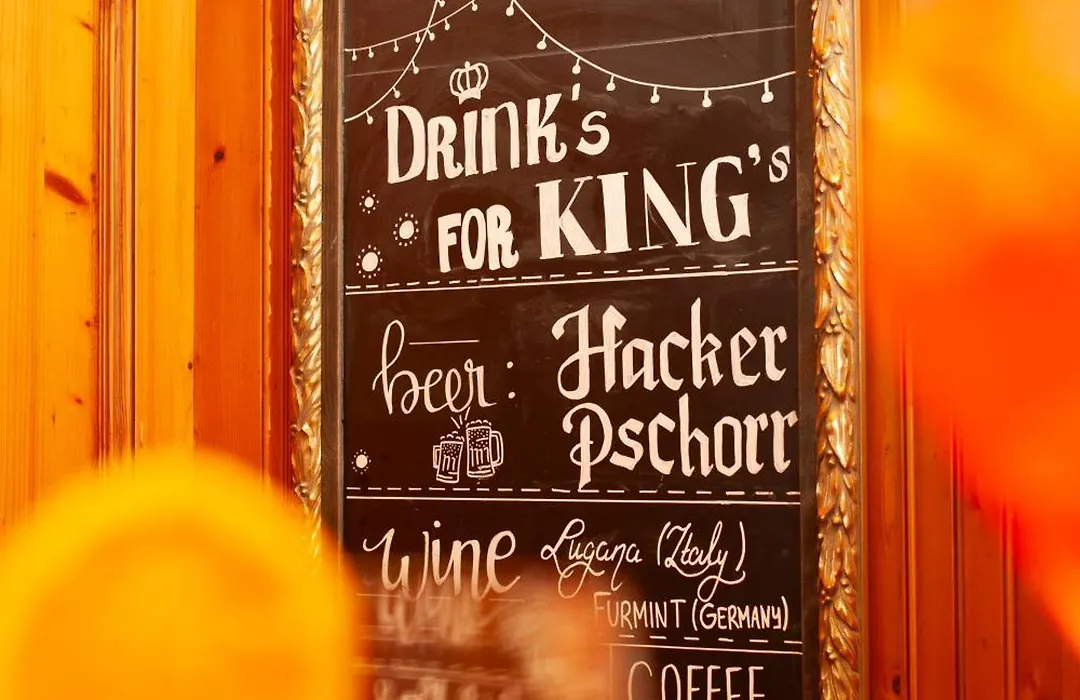 DRINK's
FOR KING's
beer: Hacker
Pschorr
Wine Lugana (Italy)
FURMINT (GERMANY)
COFFEE